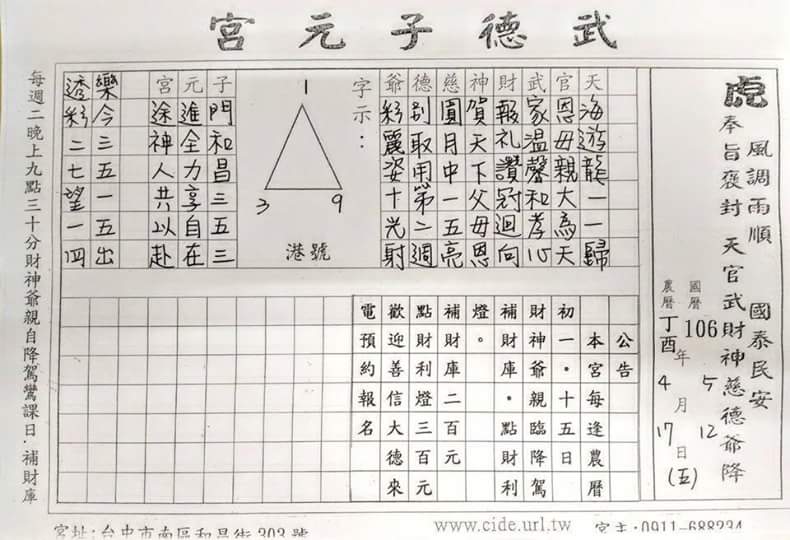 武德子元宮
虎
風調雨順 國泰民安
奉旨褒封 天官武財神慈德爺降
國曆 106 5 12
農曆丁酉年4月17日(五)
天海遊龍一一歸
官恩母親大為天
武家溫馨和孝心
財報礼讚冠迴向
神賀天下父母恩
慈圓月中一五亮
德別取用第二週
爺彩麗姿十光射
字示：
1
3 9
港號
子門和昌三五三
元進全力享自在
宮途神人共以赴
樂今三五一五出
透彩二七望一四
公告
本宮每逢農曆
初一．十五日
財神爺親臨降駕
補財庫．點財利
燈。
補財庫二百元
點財利燈三百元
歡迎善信大德來
電預約報名
每週二晚上九點三十分財神爺親自降駕鸞課日．補財庫
宮址:台中市南區和昌街303號
www.cide.url.tw
宮主:0911-688234